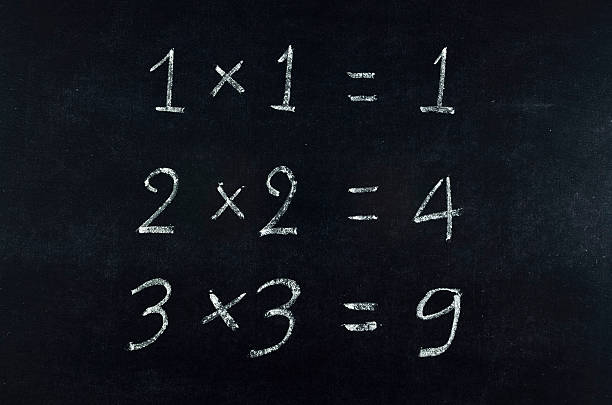 1 × 1 = 1
2 × 2 = 4
3 × 3 = 9